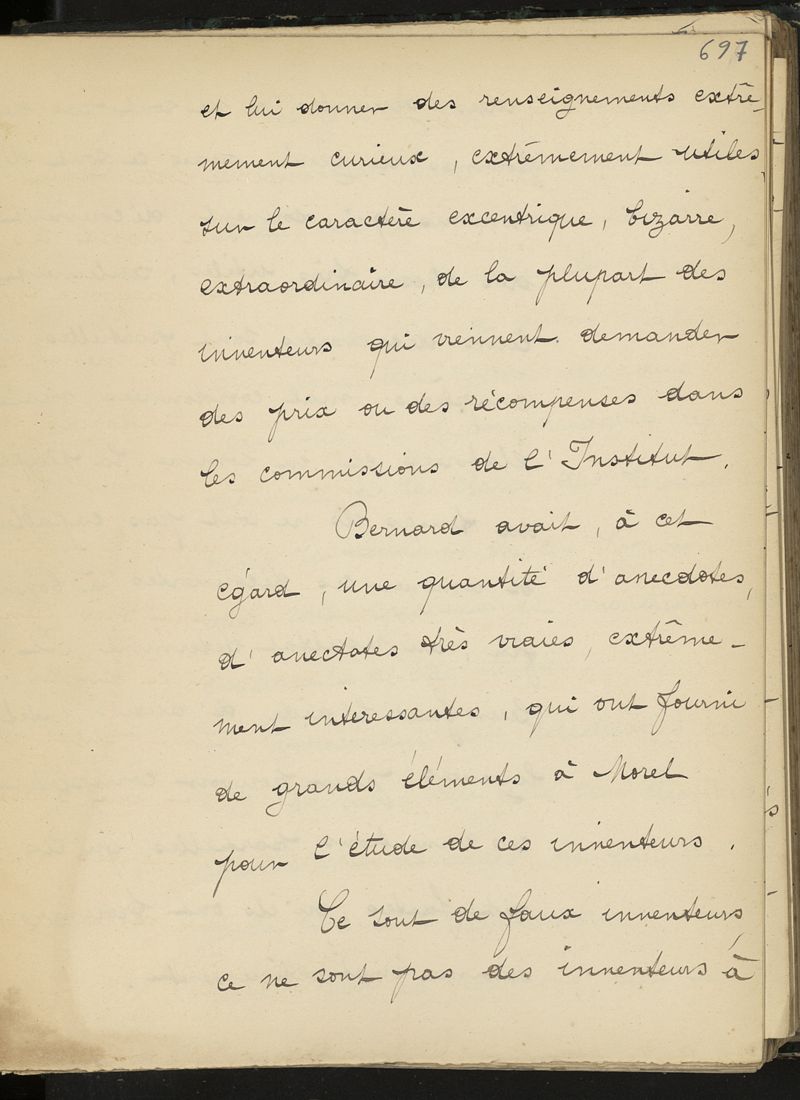 697
et lui donner des renseignements extrê-
mement curieux, extrêmement utiles
sur le caractère excentrique, bizarre,
extraordinaire, de la plupart des
inventeurs qui viennent demander
des prix ou des récompenses dans
les commissions de l'Institut.
Bernard avait, à cet
égard, une quantité d'anecdotes,
d'anectotes très vraies, extrême-
ment interessantes, qui ont fourni
de grands éléments à Morel
pour l'étude de ces inventeurs.
Ce sont de faux inventeurs,
ce ne sont pas des inventeurs à